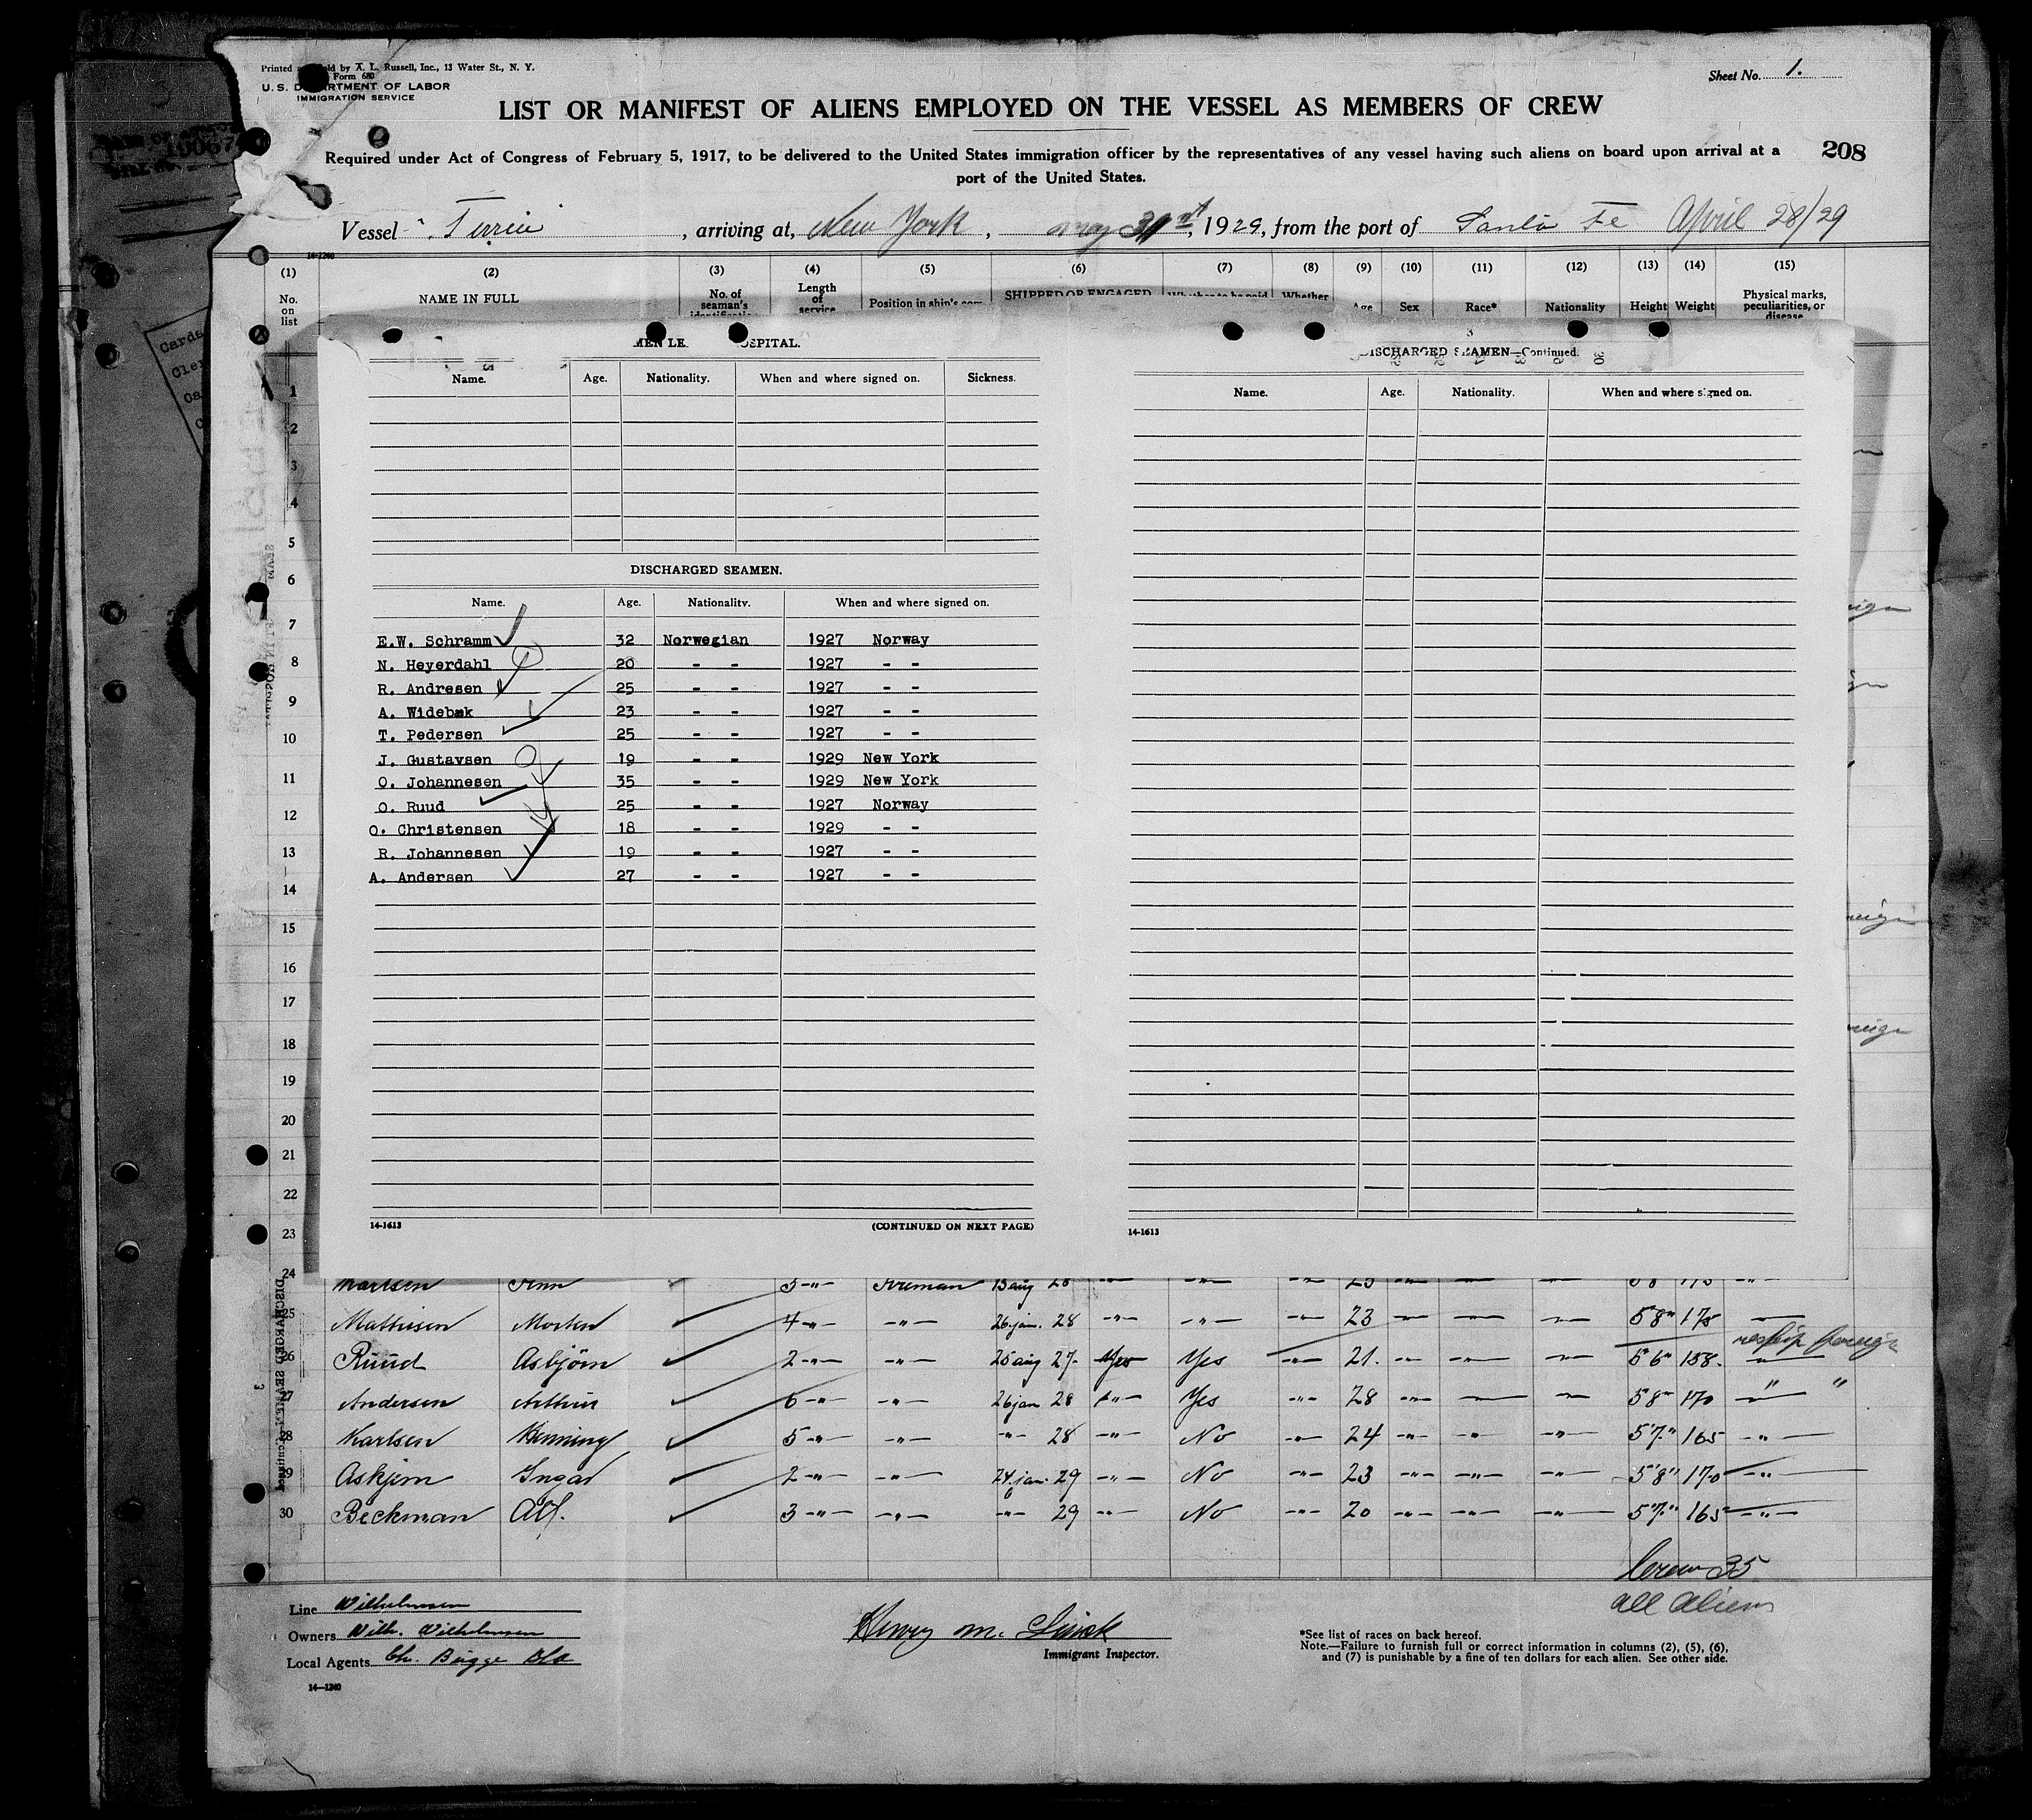 Printed and Sold by A. L. Russell, Inc., 13 Water St., N. Y.
Form 680
U. S. DEPARTMENT OF LABOR
IMMIGRATION SERVICE
Sheet No. 1.
LIST OR MANIFEST OF ALIENS EMPLOYED ON THE VESSEL AS MEMBERS OF CREW
Required under Act of Congress of February 5, 1917, to be delivered to the United States immigration officer by the representatives of any vessel having such aliens on board upon arrival at a
port of the United States.
208
Vessel , arriving at, New York, may 31st, 1929, from the port of Santa Fe April 28/29
14-1240
(1) (2) (3) (4) (5) (6) (7) (8) (9) (10) (11) (12) (13) (14) (15)
No. on list NAME IN FULL No. of seaman's Length of service Position in ship's com SHIPPED OR ENGAGED Whether to be paid Whether Age Sex Race* Nationality Height Weight Physical marks, peculiarities, or disease
MEN LE OSPITAL.
Name. Age. Nationality. When and where signed on. Sickness.
DISCHARGED SEAMEN.
Name. Age. Nationality. When and where signed on.
E.W. Schramm 32 Norwegian 1927 Norway
N. Heyerdahl 20 - - 1927 - -
R. Andresen 25 - - 1927 - -
A. Widebæk 23 - - 1927 - -
T. Pedersen 25 - - 1927 - -
J. Gustavsen 19 - - 1929 New York
O. Johannesen 35 - - 1929 New York
O. Ruud 25 - - 1927 Norway
O. Christensen 18 - - 1929 - -
R. Johannesen 19 - - 1927 - -
A. Andersen 27 - - 1927 - -
14-1613 (CONTINUED ON NEXT PAGE)
DISCHARGED SEAMEN—Continued.
Name. Age. Nationality. When and where signed on.
14-1613
1
2
3
4
5
6
7
8
9
10
11
12
13
14
15
16
17
18
19
20
21
22
23
24 Karlsen Finn 5 -"- Fireman 13 aug 28 -"- -"- -"- 25
25 Mathisen Morten 4 -"- -"- 26 jan. 28 -"- -"- -"- 23 -"- -"- -"- 5'8" 178 -"-
reship foreign
26 Ruud Asbjörn 2 -"- -"- 25 aug 27 Yes Yes -"- 21. -"- -"- -"- 5'6" 158. -"-
27 Andersen Arthur 6 -"- -"- 26 jan 28 -"- Yes -"- 28 -"- -"- -"- 5'8" 170 -"- " "
28 Karlsen Henning 5 -"- -"- -"- 28 -"- No -"- 24 -"- -"- -"- 5'7" 165 -"-
29 Askjem Ingar 2 -"- -"- 24 jan. 29 -"- No -"- 23 -"- -"- -"- 5'8" 170 -"-
30 Beckman Alf. 3 -"- -"- -"- 29 -"- No -"- 20 -"- -"- -"- 5'7" 165 -"-
Crew 35
all aliens
Line Wilhelmsen
Owners Wilh. Wilhelmsen
Local Agents Ch. Bugge
Henry M.
Immigrant Inspector.
*See list of races on back hereof.
Note.—Failure to furnish full or correct information in columns (2), (5), (6),
and (7) is punishable by a fine of ten dollars for each alien. See other side.
14—1240